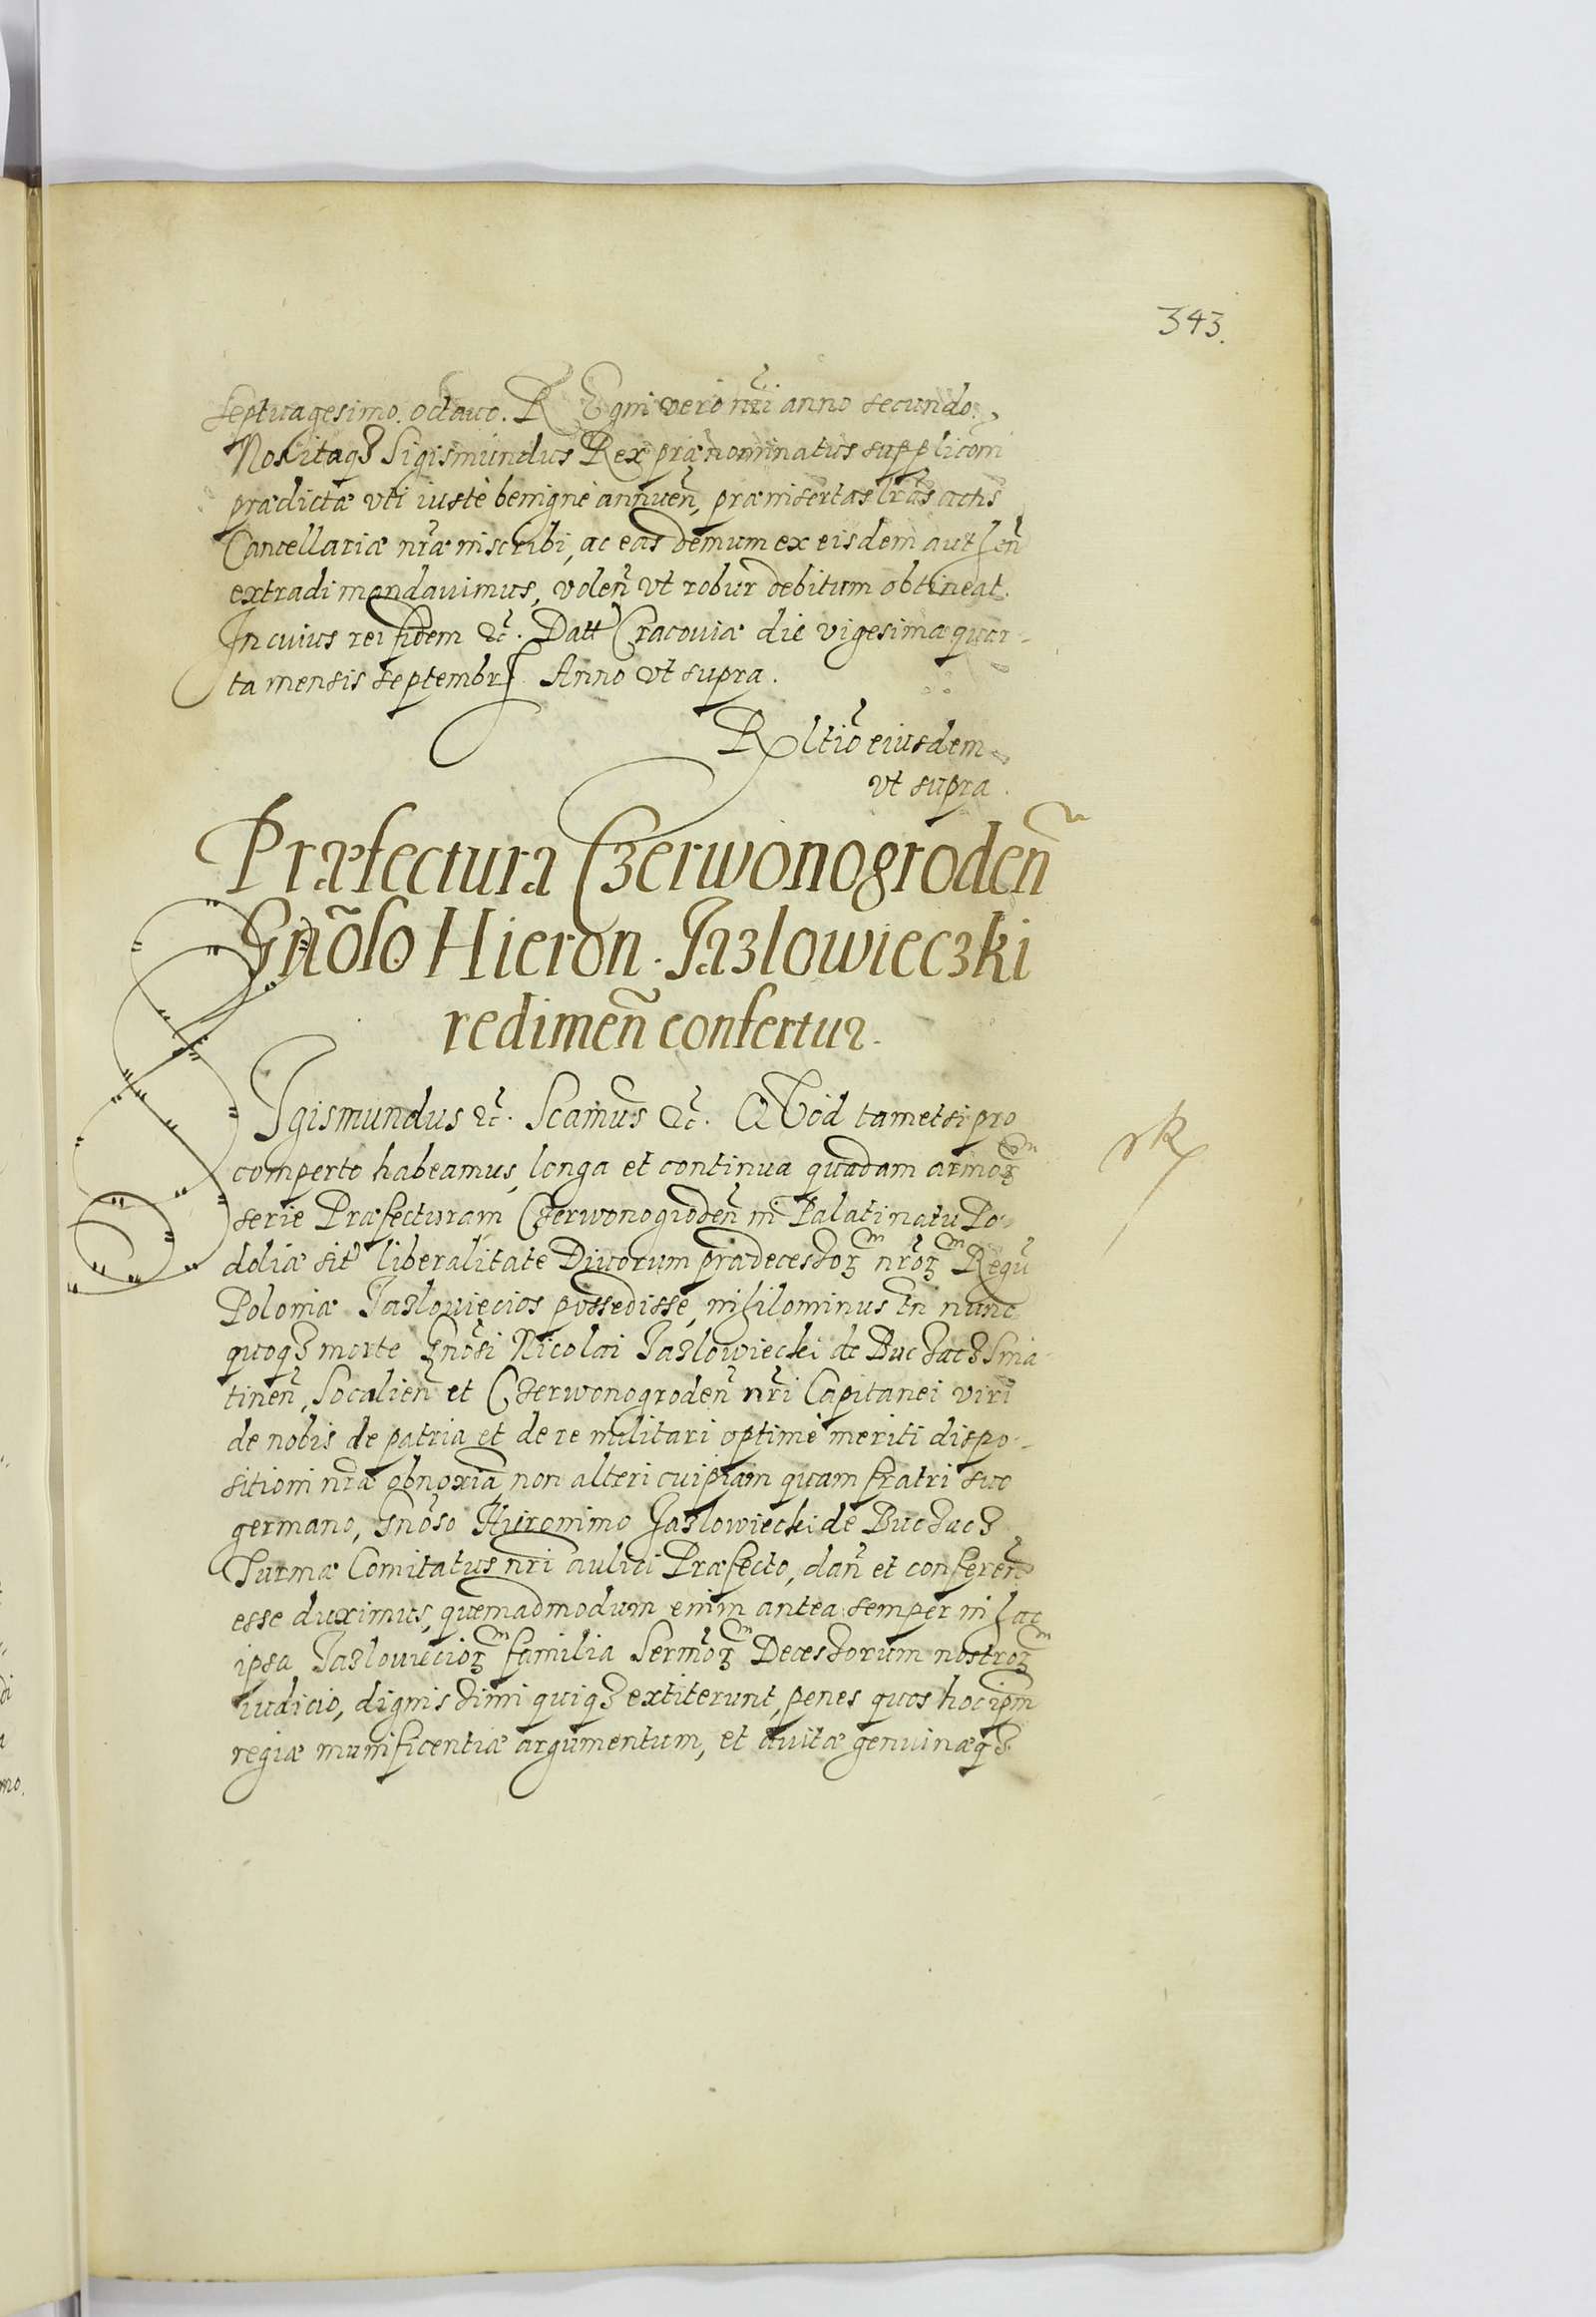 343.
septuagesimo. octauo. REgni vero nr̃i anno secundo.
Nos itaq₃ Sigismundus Rex prænominatus supplicõni
prædictæ vti iustè benignè annuen̄, præinsertas lr̃as actis
Cancellariæ nr̃æ inscribi, ac eas demum ex eisdem authen̄
extradi mandauimus, volen̄ vt robur debitum obtineat.
In cuius rei fidem &c̃. Datt Cracouiæ die vigesima quar-
ta mensis septembrꝭ. Anno vt supra.
Rltio eiusdem
vt supra.
Præfectura Czerwonogroden̄
Gn̄oso Hieron. Jazlowieczki
redimen̄ confertur.
SIgismundus &c̃. Scamus &c̃. QVod tametsi pro
comperto habeamus, longa et continua quadam annoꝝ
serie Præfecturam Czerwonogroden̄ in Palatinatu Po-
doliæ sit̃ liberalitate Diuorum prædecessoꝝ nr̃oꝝ Regũ
Poloniæ Jazlouiecios possedisse, nihilominus tñ nunc
quoq₃ morte Gn̄osi Nicolai Jazlowiecki de Buczacz Snia-
tinen̄, Socalien̄ et Czerwonogroden̄ nr̃i Capitanei viri
de nobis de patria et de re militari optimè meriti dispo-
sitioni nr̃æ obnoxiã, non alteri cuipiam quam fratri suo
germano, Gn̄oso Hieronimo Jazlowiecki de Buczacz
Turmæ Comitatus nr̃i aulici Præfecto, dan̄ et conferen̄
esse duximus, quemadmodum enim antea semper in hac
ipsa Jazlouiecioꝝ familia Sermoꝝ Decessorum nostroꝝ
iudicio, dignissimi quiq₃ extiterunt, penes quos hoc ipm̄
regiæ munificentiæ argumentum, et auitæ genuinæq₃